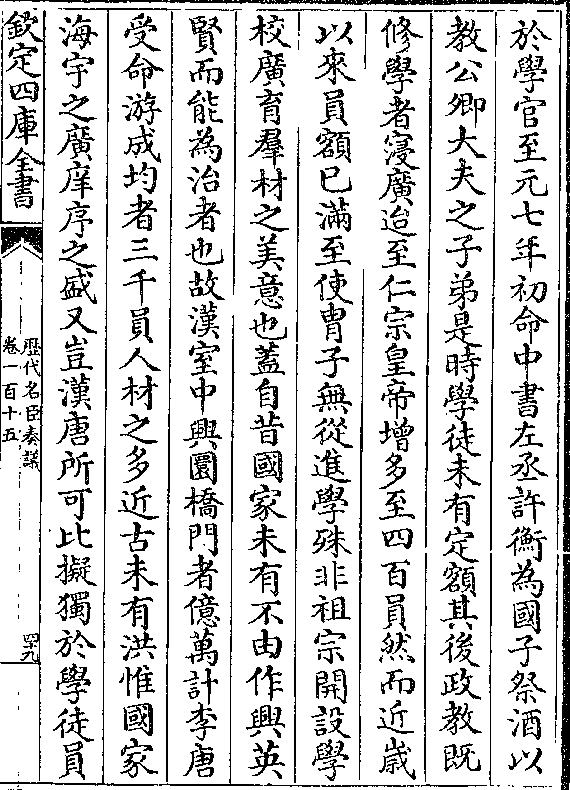 於學官至元七年初命中書左丞許衡為國子祭酒以
教公卿大夫之子弟是時學徒未有定額其後政教既
修學者寖廣迨至仁宗皇帝增多至四百員然而近歳
以來員額已滿至使胄子無從進學殊非祖宗開設學
校廣育羣材之美意也蓋自昔國家未有不由作興英
賢而能為治者也故漢室中興圜橋門者億萬計李唐
受命游成均者三千員人材之多近古未有洪惟國家
海宇之廣庠序之盛又豈漢唐所可比擬獨於學徒員
欽定四庫全書
歴代名臣奏議
卷一百十五
四十九